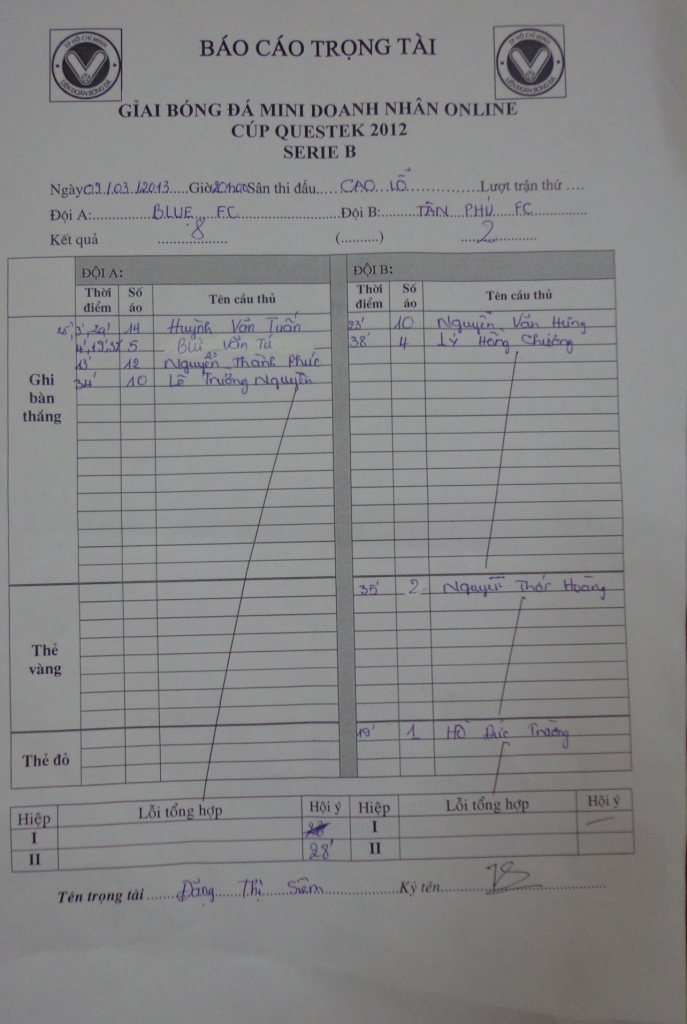 TP HỒ CHÍ MINH
LIÊN ĐOÀN BÓNG ĐÁ
BÁO CÁO TRỌNG TÀI
TP HỒ CHÍ MINH
LIÊN ĐOÀN BÓNG ĐÁ
GIẢI BÓNG ĐÁ MINI DOANH NHÂN ONLINE
CÚP QUESTEK 2012
SERIE B
Ngày 09/03/2013 Giờ Sân thi đấu CAO LỖ Lượt trận thứ ....
Đội A: BLUE FC Đội B: TÂN PHÚ FC
Kết quả 8 (..........) 2
ĐỘI A: ĐỘI B:
Thời điểm Số áo Tên cầu thủ Thời điểm Số áo Tên cầu thủ
Ghi bàn thắng
14 Huỳnh Văn Tuấn 23' 10 Nguyễn Văn Hưng
5 Bùi Văn Tú 38' 4 Lý Hồng Chương
13' 12 Nguyễn Thành Phúc
34' 10 Lê Trường Nguyên
Thẻ vàng
35' 2 Nguyễn Hoàng
Thẻ đỏ
19' 1 Hồ Đức Trường
Hiệp Lỗi tổng hợp Hội ý Hiệp Lỗi tổng hợp Hội ý
I I
II 28' II
Tên trọng tài Đặng Thị Siêm Ký tên